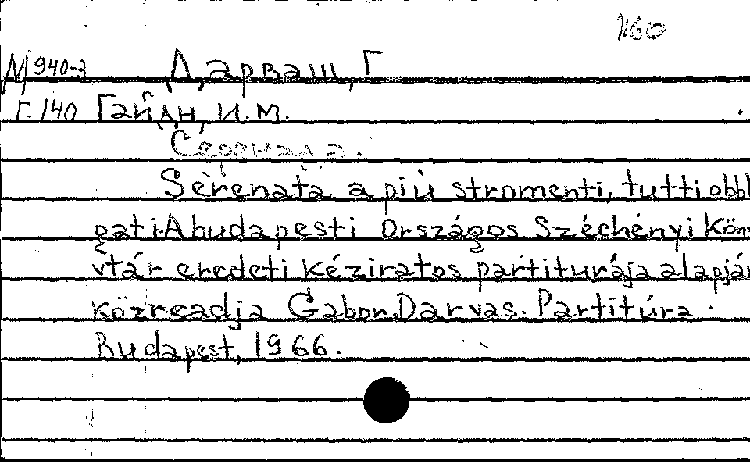 1160
М 940-3 Дарваш, Г
Г. 140 Гайдн, И. М.
Серенада.
Serenata a più stromenti, tutti obbli
gati. A budapesti Országos Széchényi Köny
vtár eredeti kéziratos partiturája alapján
közreadja Gabor Darvas. Partitúra.
Budapest, 1966.